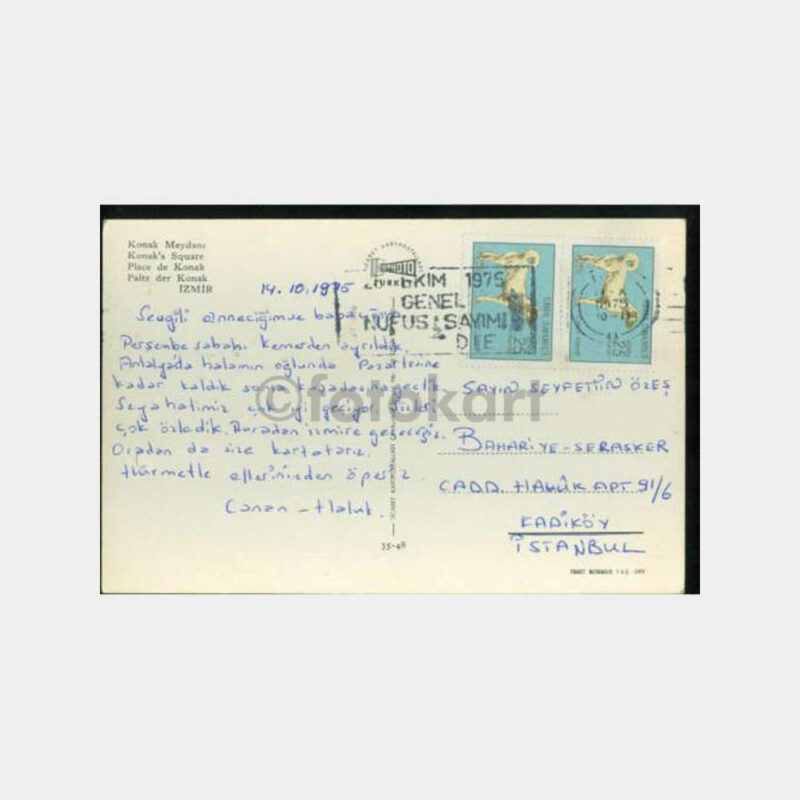 Konak Meydanı
Konak's Square
Place de Konak
Paltz der Konak
İZMİR
14.10.1975
EKIM 1975
GENEL
NUFUS SAYIMI
DIE
Sevgili anneciğim ve babacığım
Perşembe sabahı Kemerden ayrıldık.
Antalya'da halamın oğlunda Pazartesine
kadar kaldık sonra
Seyahatimiz çok iyi geçiyor. Sizleri
çok özledik. Buradan izmire geçeceğiz.
Oradan da size kart atarız.
Hürmetle ellerinizden öperiz
Canan - Haluk.
SAYIN SEYFETTİN ÖZEŞ
BAHARİYE-SERASKER
CADD. HALÛK APT 91/6
KADIKÖY
İSTANBUL
©fotokart
35-48